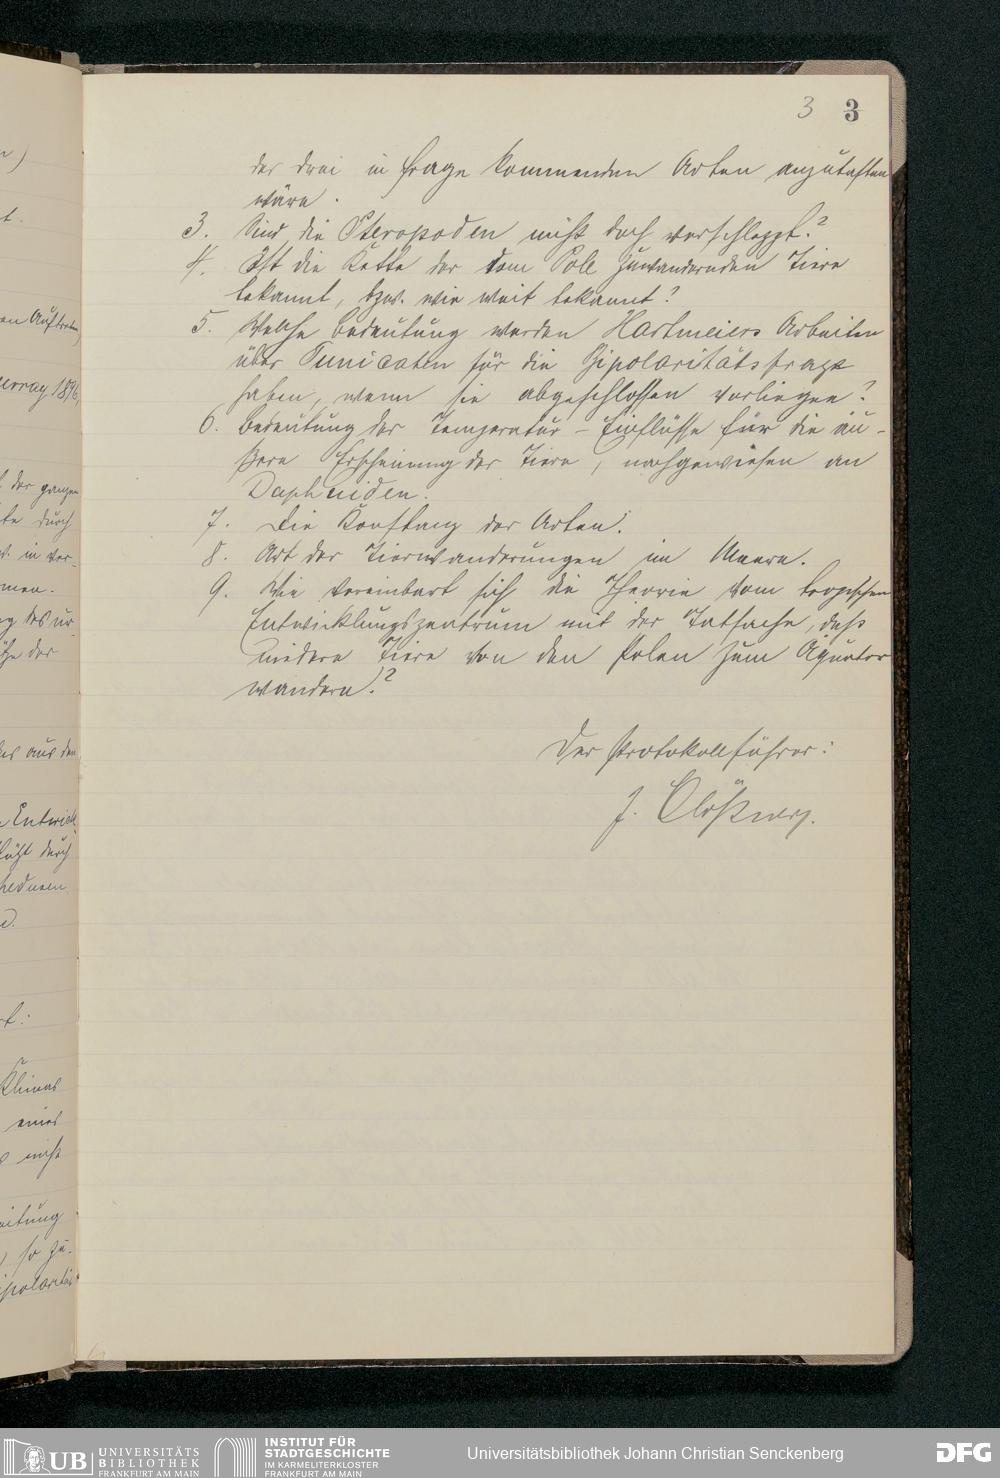 3 3
der drei in Frage kommenden Arten anzutasten
wäre.
3. Sind die Pteropoden nicht doch verschleppt?
4. Ist die Kette der vom Pole zuwandernden Tiere
bekannt, bzw. wie weit bekannt?
5. Welche Bedeutung werden Hartmeiers Arbeiten
über Tunicaten für die Bipolaritätsfrage
haben, wenn sie abgeschlossen vorliegen?
6. Bedeutung der Temperatur-Einflüsse für die äu-
ßere Erscheinung der Tiere, nachgewiesen an
Daphniden.
7. Die Konstanz der Arten.
8. Art der Tierwanderungen im Meere.
9. Wie vereinbart sich die Theorie vom tropischen
Entwicklungszentrum mit der Tatsache, daß
niedere Tiere von den Polen zum Äquator
wandern?
Der Protokollführer:
J.
UB UNIVERSITÄTS
BIBLIOTHEK
FRANKFURT AM MAIN
INSTITUT FÜR
STADTGESCHICHTE
IM KARMELITERKLOSTER
FRANKFURT AM MAIN
Universitätsbibliothek Johann Christian Senckenberg
DFG